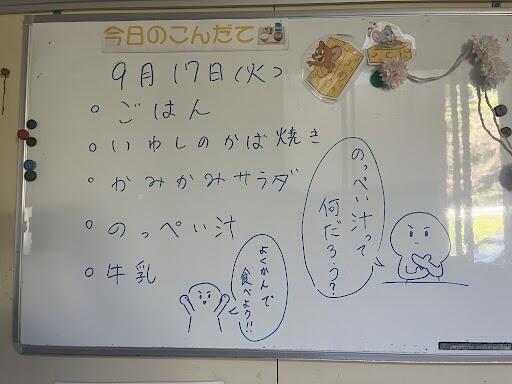 今日のこんだて
9月17日(火)
○ ごはん
○ いわしのかば焼き
○ かみかみサラダ
○ のっぺい汁
○ 牛乳
のっぺい汁って
何だろう?
よくかんで
食べよう!!